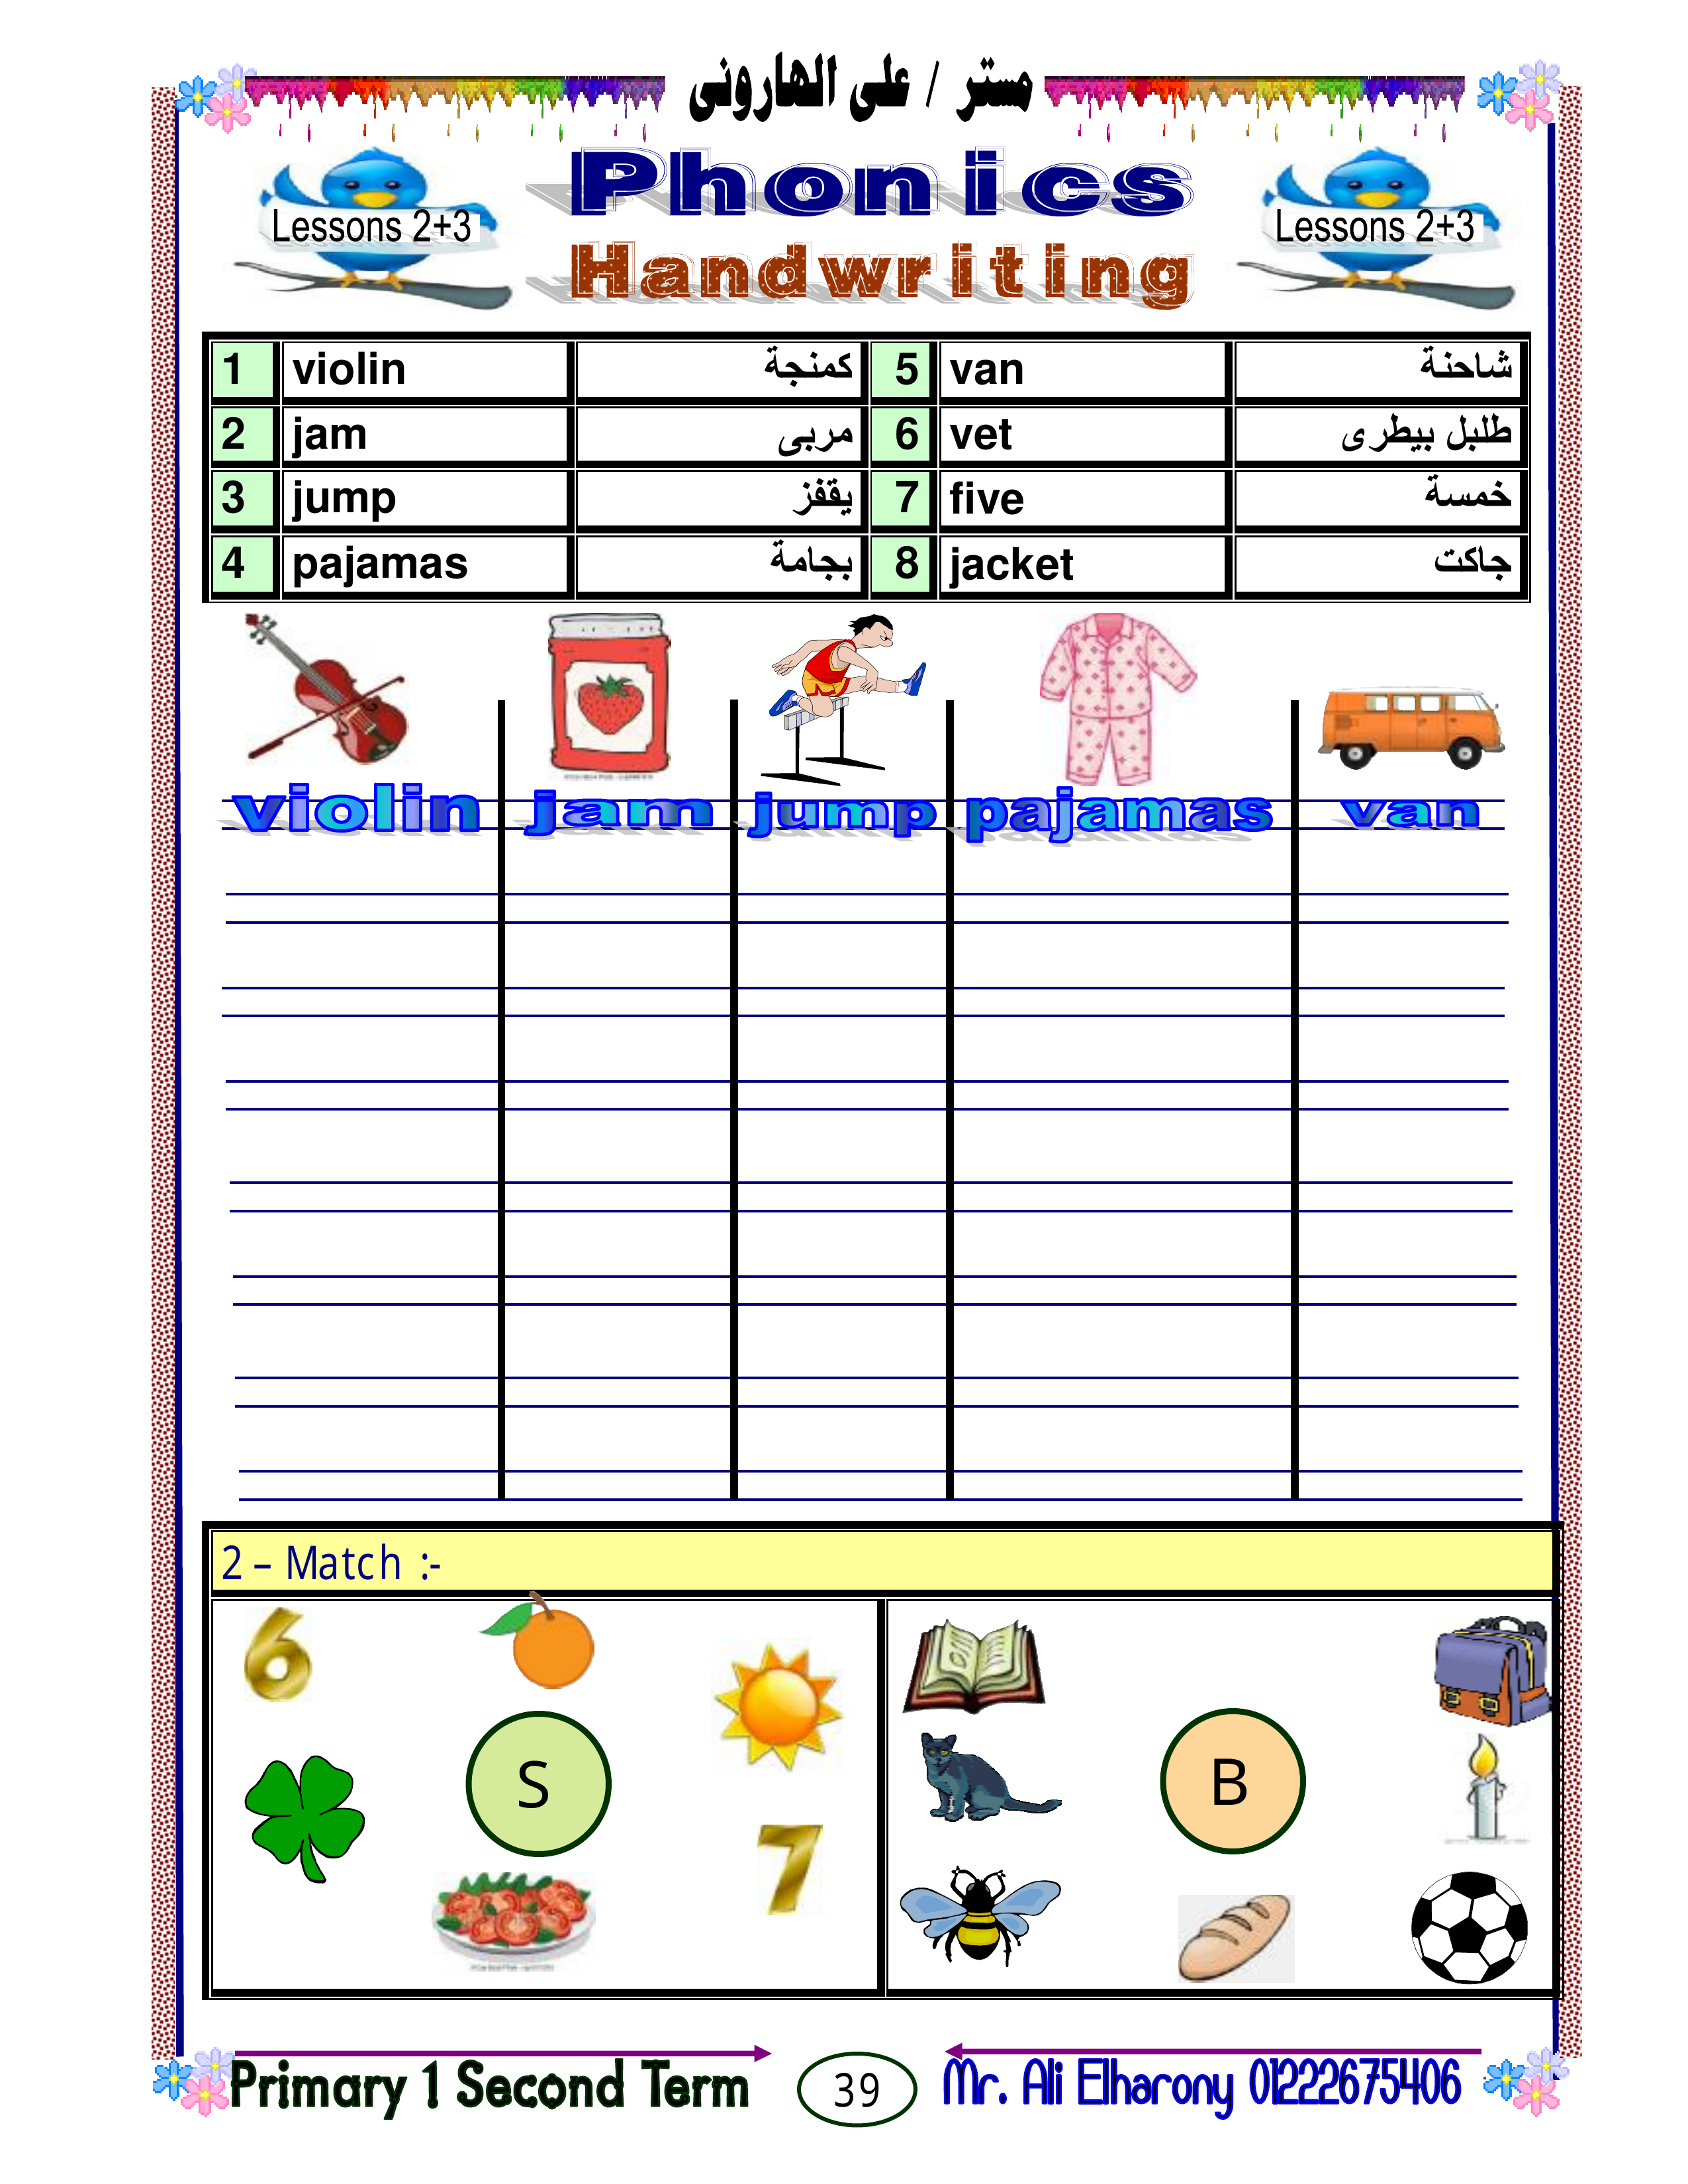 مستر / على الهارونى
Phonics
Lessons 2+3
Lessons 2+3
Handwriting
1 violin كمنجة 5 van شاحنة
2 jam مربى 6 vet طلبل بيطرى
3 jump يقفز 7 five خمسة
4 pajamas بجامة 8 jacket جاكت
violin jam jump pajamas van
2 – Match :-
6
S
B
7
Primary 1 Second Term
39
Mr. Ali Elharony 01222675406